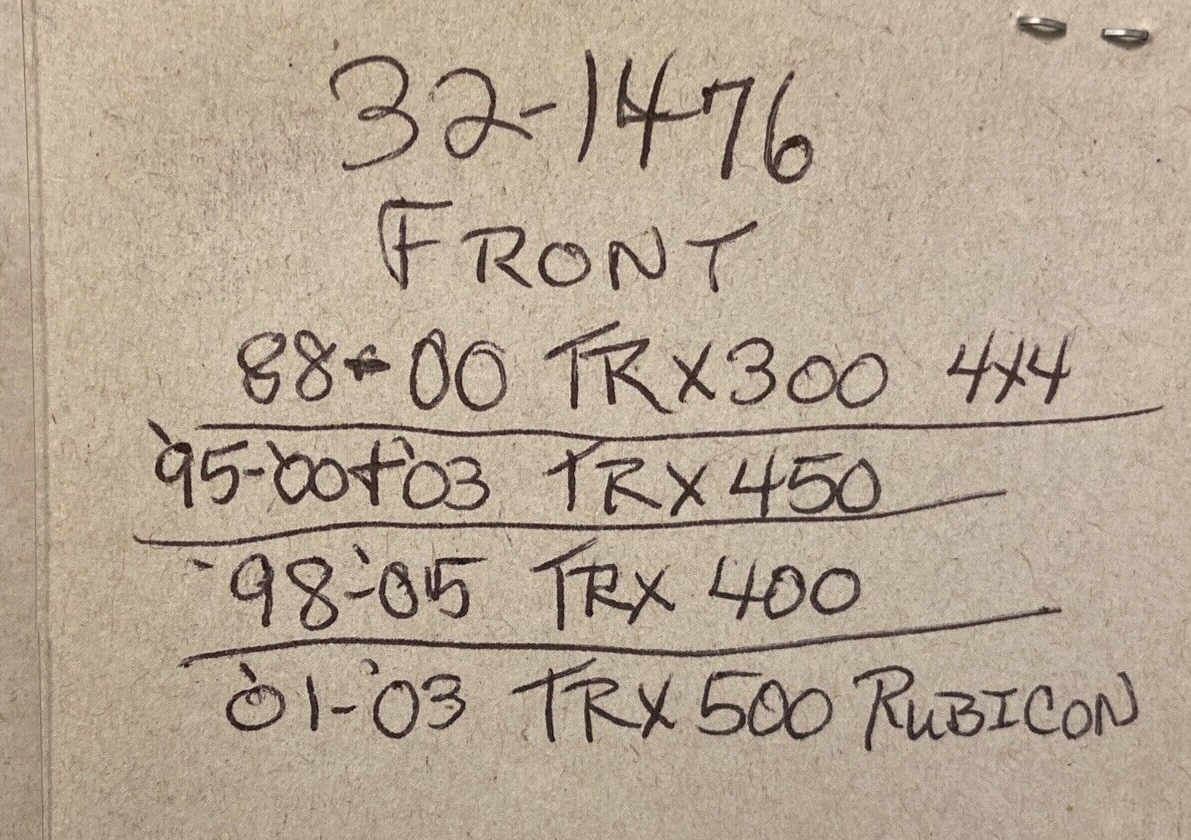 32-1476
FRONT
88-00 TRX300 4x4
'95-'00+'03 TRX450
'98-'05 TRX 400
'01-'03 TRX500 RUBICON